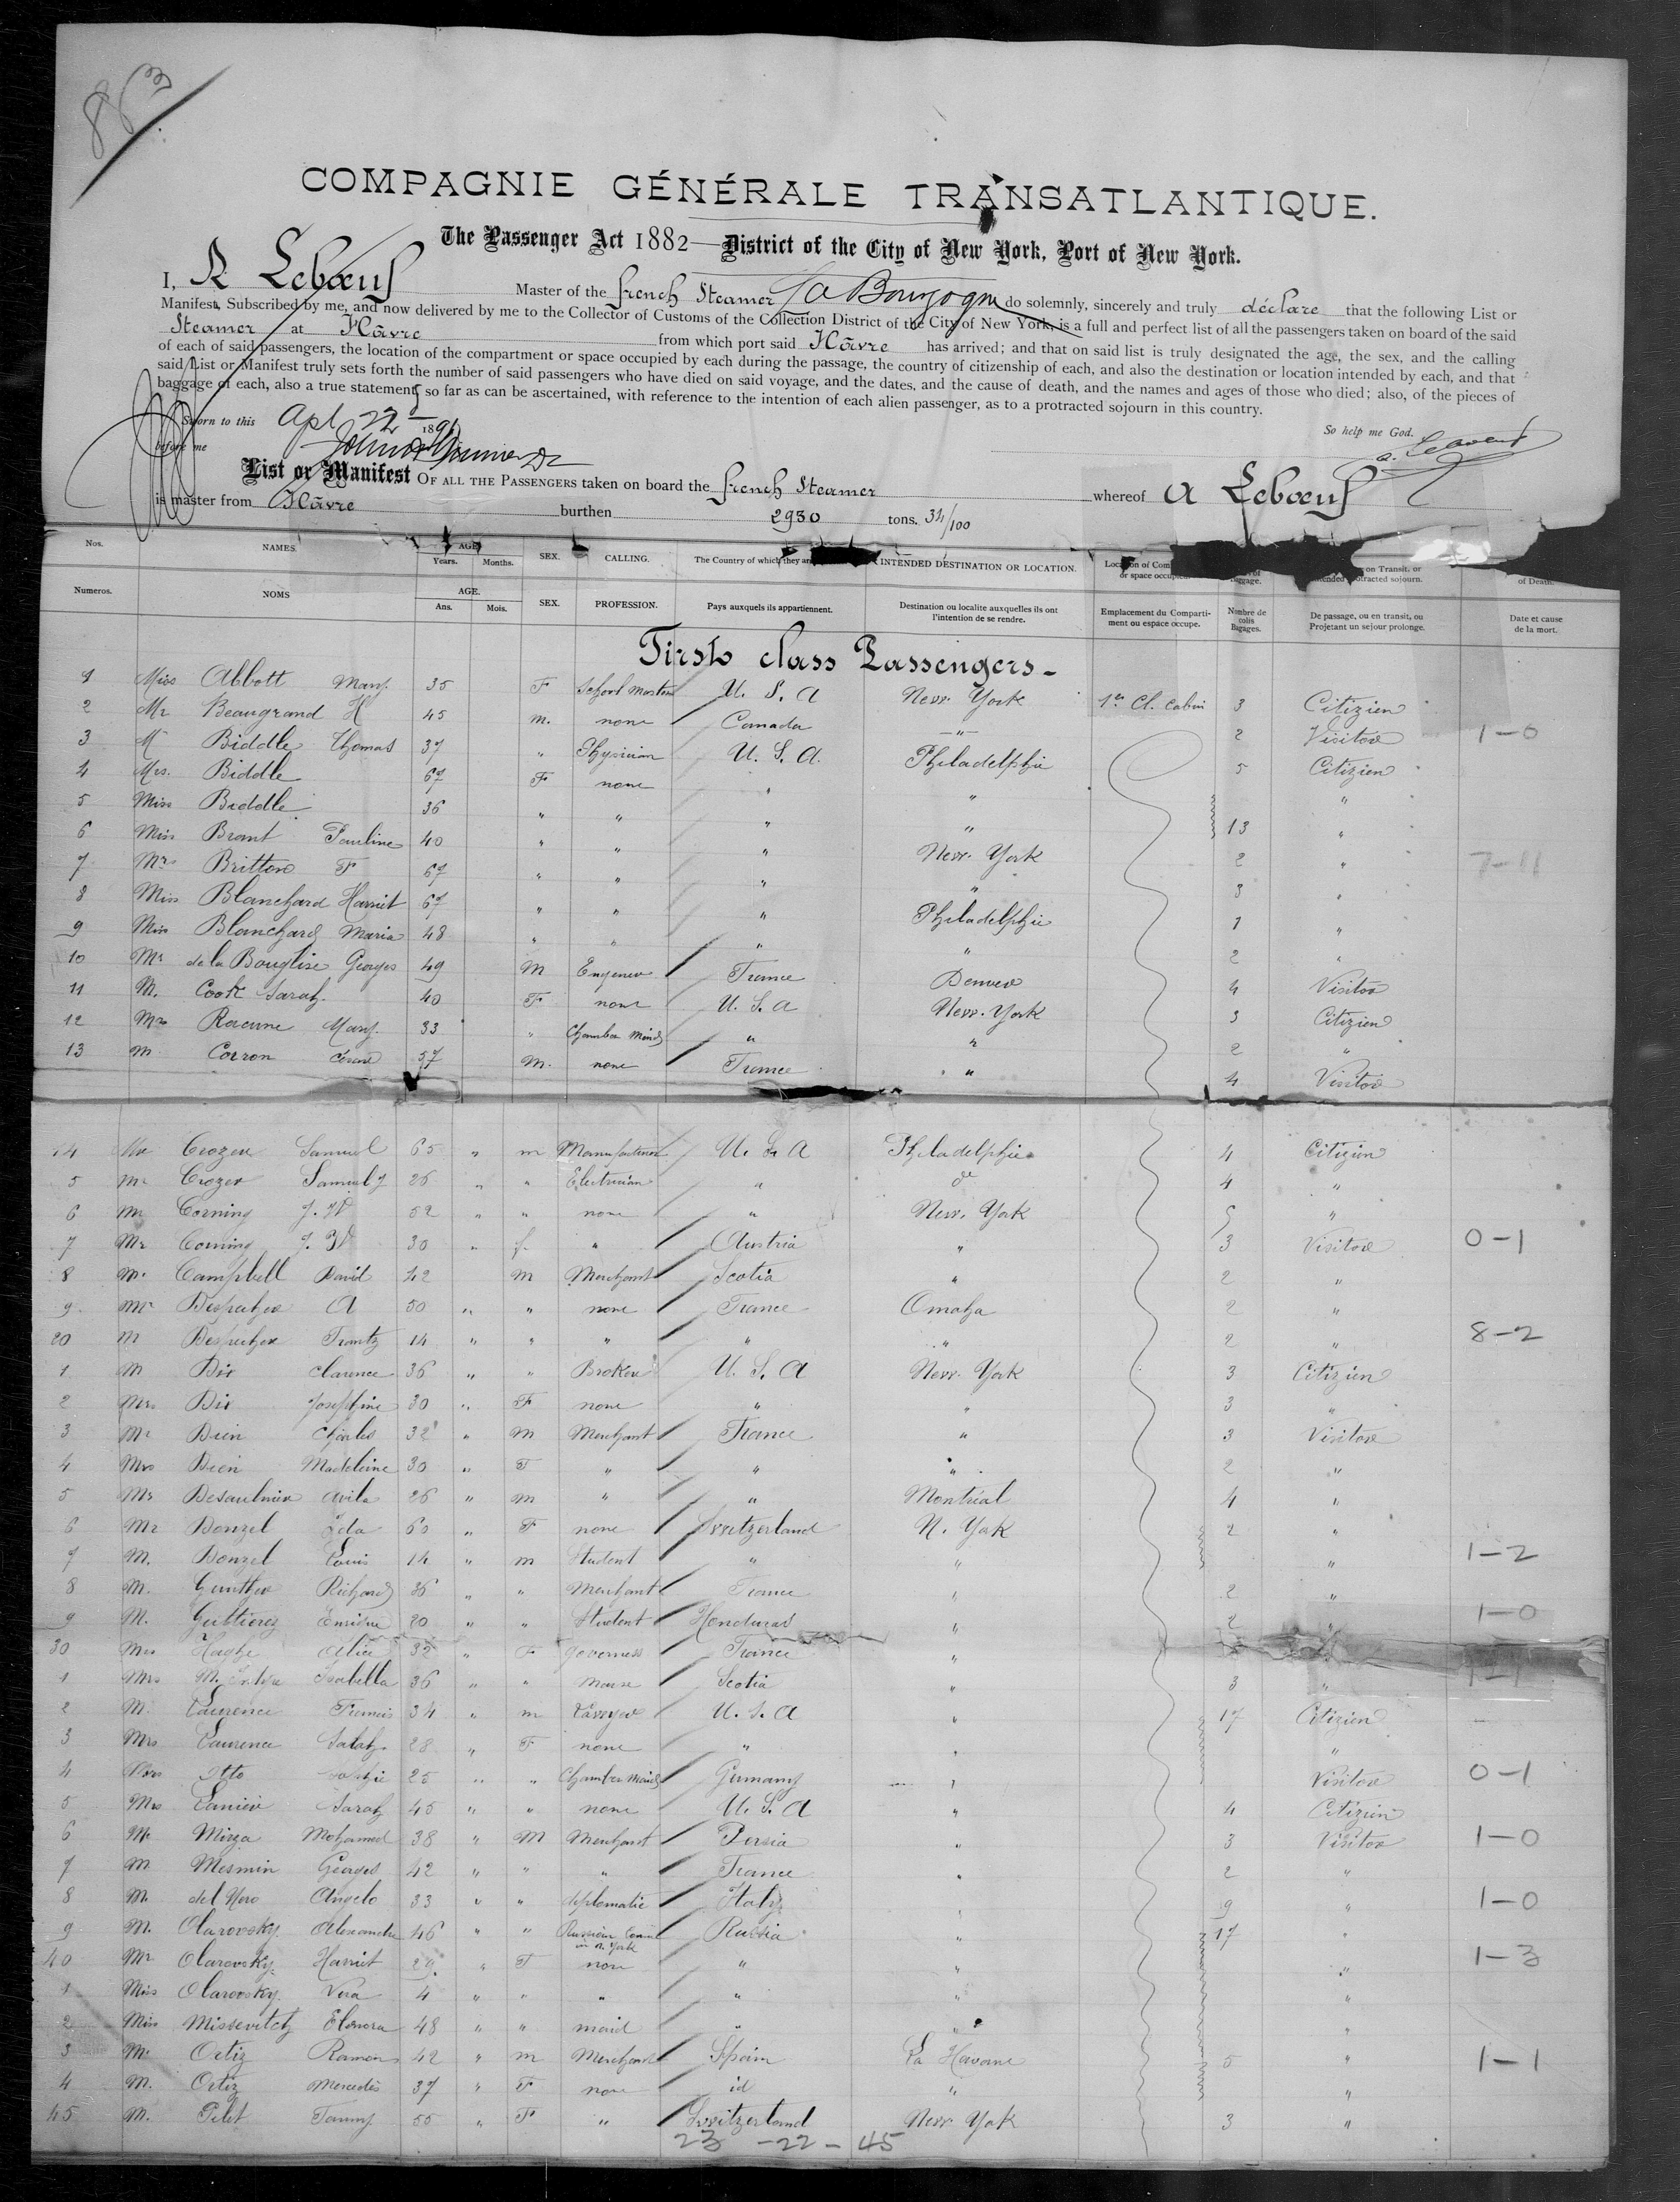 863
COMPAGNIE GÉNÉRALE TRANSATLANTIQUE.
The Passenger Act 1882—District of the City of New York, Port of New York.
I, A Lebœuf Master of the french Steamer La Bourgogne do solemnly, sincerely and truly déclare that the following List or
Manifest, Subscribed by me, and now delivered by me to the Collector of Customs of the Collection District of the City of New York, is a full and perfect list of all the passengers taken on board of the said
Steamer at Hâvre from which port said Hâvre has arrived; and that on said list is truly designated the age, the sex, and the calling
of each of said passengers, the location of the compartment or space occupied by each during the passage, the country of citizenship of each, and also the destination or location intended by each, and that
said List or Manifest truly sets forth the number of said passengers who have died on said voyage, and the dates, and the cause of death, and the names and ages of those who died; also, of the pieces of
baggage of each, also a true statement, so far as can be ascertained, with reference to the intention of each alien passenger, as to a protracted sojourn in this country.
Sworn to this Apl 22 1891 So help me God.
before me A. Lebœuf
List or Manifest OF ALL THE PASSENGERS taken on board the french Steamer whereof A Lebœuf
is master from Hâvre burthen 2930 tons. 34/100
Nos. NAMES. AGE. Years. Months. SEX. CALLING. The Country of which they are INTENDED DESTINATION OR LOCATION. Location of or space on Transit, or protracted sojourn. of Death.
Numeros. NOMS AGE. Ans. Mois. SEX. PROFESSION. Pays auxquels ils appartiennent. Destination ou localite auxquelles ils ont l'intention de se rendre. Emplacement du Compartiment ou espace occupe. Nombre de colis Bagages. De passage, ou en transit, ou Projetant un sejour prolonge. Date et cause de la mort.
First class Passengers-
1 Miss Abbott Mary 35 F U. S. A New. York 1re Cl. Cabin 3 Citizien
2 Mr Beaugrand H 45 m. none Canada -"- 2 Visitor 1-0
3 M Biddle Thomas 37 " Physician U. S. A. Philadelphie 5 Citizien
4 Mrs. Biddle 67 F none " " "
5 Miss Biddle 36 " " " " 13 "
6 Miss Brant Pauline 40 " " " New. York 2 " 7-11
7 Mrs Britton F 67 " " " " 3 "
8 Miss Blanchard Harriet 67 " " " Philadelphie 1 "
9 Miss Blanchard Maria 48 " " " " 2 "
10 Mr de la Bouglise Georges 49 M Engeneer France Denver 4 Visitor
11 M. Cook Sarah 40 F none U. S. A New. York 3 Citizien
12 Mrs Mary 33 " Chamber Maid " " 2 "
13 m 57 m. none France " 4 Visitor
14 Mr Crozer Samuel 65 " m U. S. A Philadelphie 4 Citizien
5 Mr Crozer Samuel J 26 " " Electrician " do 4 "
6 m Corning J. W 52 " " none " New. York 5 "
7 Mr Corning J. W 30 " f. " Austria " 3 Visitor 0-1
8 m. Campbell David 42 m Merchant Scotia " 2 "
9 Mr A 50 " " none France Omaha 2 "
20 m Frantz 14 " " " " " 2 " 8-2
1 m Dix Clarence 36 " " Broker U. S. A New. York 3 Citizien
2 Mrs Dix Josephine 30 " F none " " 3 "
3 Mr Dien Charles 32 " m Merchant France " 3 Visitor
4 Mrs Dien Madeleine 30 " F " " " 2 "
5 Mr Desaulniers Avila 26 " m " " Montréal 4 "
6 Mr Donzel Ida 60 " F none Switzerland N. York 2 "
7 M. Donzel Louis 14 " m Student " " " 1-2
8 M. Gunther Richard 36 " " Merchant France " 2 "
9 M. Guttierez Enrique 20 " " Student Honduras " 2 " 1-0
30 Mrs Alice 32 " F Governess France "
1 Mrs Isabella 36 " " Scotia " 3 " 1-1
2 M. Laurence Francis 34 " m Lawyer U. S. A " 17 Citizien
3 Mrs Laurence Sarah 28 " F none " " "
4 Otto Sophie 25 " " Chamber Maid Germany " Visitor 0-1
5 Mrs Lanier Sarah 45 " " none U. S. A " 4 Citizien
6 Mr Mirza Mohamed 38 " M Merchant Persia " 3 Visitor 1-0
7 m Mesmin Georges 42 " " " France " 2 "
8 M. del Nero Angelo 33 " " deplomatic Italy " 9 " 1-0
9 M. Olarovsky Alexandre 46 " " Russian in N. York Russia " 17 "
40 Mr Olarovsky Harriet 29 " F none " " " 1-3
1 Miss Olarovsky Vera 4 " " " " " "
2 Miss Missevitch Elenora 48 " " maid " " "
3 M. Ortiz Ramon 42 " m Merchant Spain La Havane 5 " 1-1
4 M. Ortiz Mercedes 37 " F none id " "
45 M. Pelet Fanny 55 " F " Switzerland New York 3 "
23 - 22 - 45